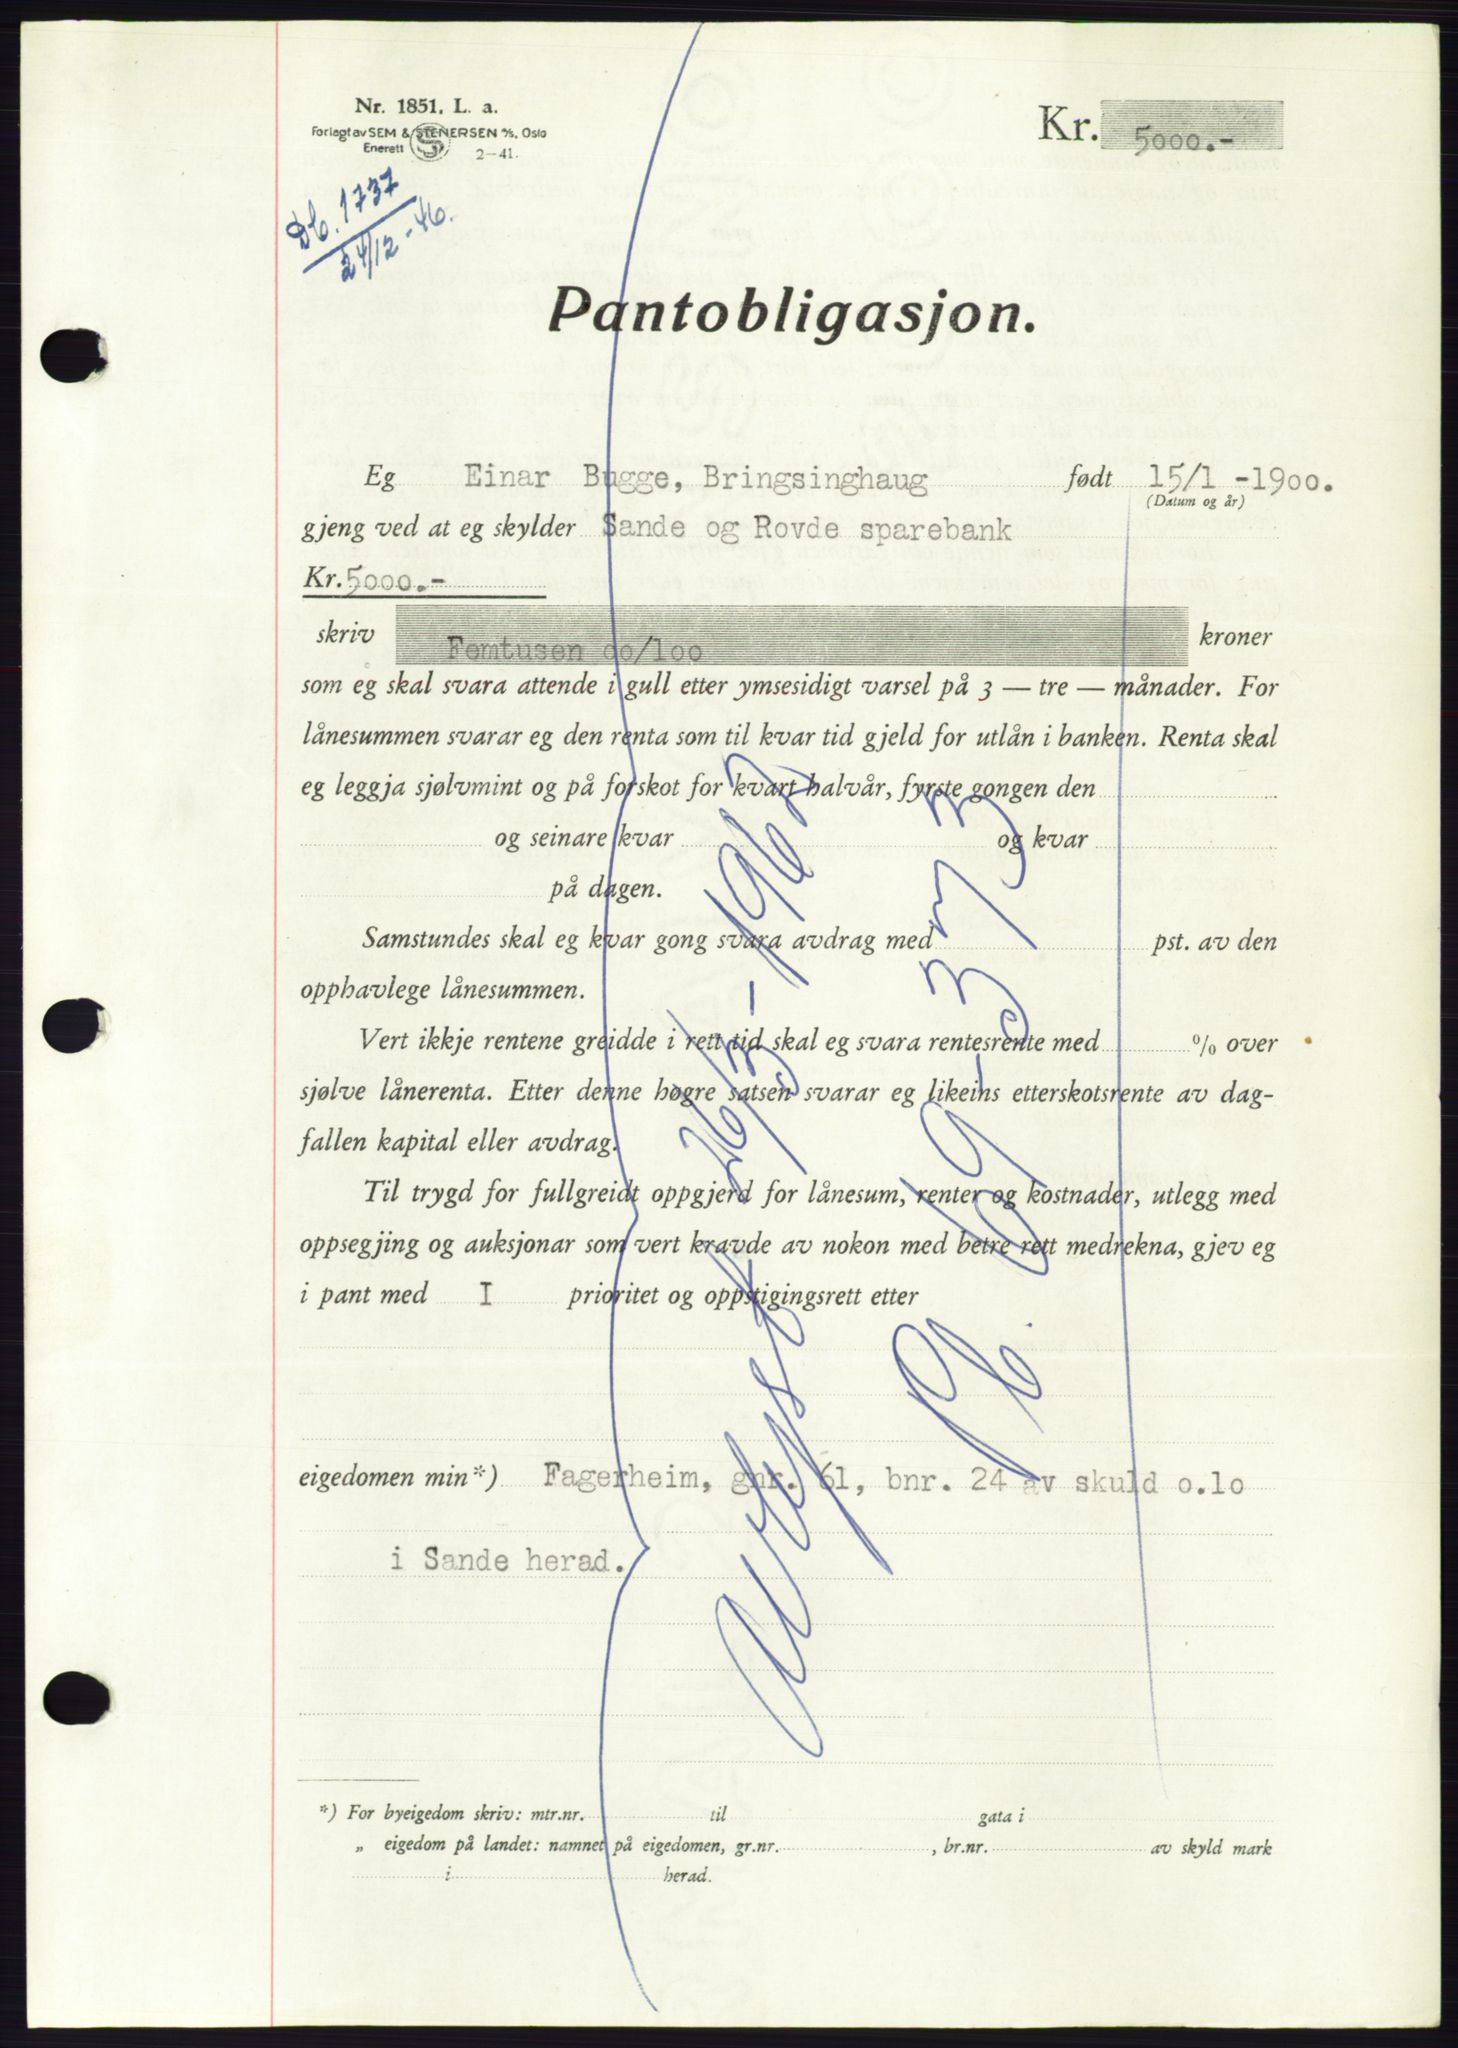 Nr. 1851, L. a.
Forlagt av SEM & STENERSEN A/S, Oslo
Enerett S 2-41.
Kr. 5000.-
Db. 1737
24/12-46.
Pantobligasjon.
Eg Einar Bugge, Bringsinghaug født 15/1 -1900.
(Datum og år)
gjeng ved at eg skylder Sande og Rovde sparebank
Kr. 5000.-
skriv Femtusen oo/loo kroner
som eg skal svara attende i gull etter ymsesidigt varsel på 3 — tre — månader. For
lånesummen svarar eg den renta som til kvar tid gjeld for utlån i banken. Renta skal
eg leggja sjølvmint og på forskot for kvart halvår, fyrste gongen den
og seinare kvar og kvar
på dagen.
Samstundes skal eg kvar gong svara avdrag med pst. av den
opphavlege lånesummen.
Vert ikkje rentene greidde i rett tid skal eg svara rentesrente med % over
sjølve lånerenta. Etter denne høgre satsen svarar eg likeins etterskotsrente av dag-
fallen kapital eller avdrag.
Til trygd for fullgreidt oppgjerd for lånesum, renter og kostnader, utlegg med
oppsegjing og auksjonar som vert kravde av nokon med betre rett medrekna, gjev eg
i pant med I prioritet og oppstigingsrett etter
eigedomen min*) Fagerheim, gnr. 61, bnr. 24 av skuld o.lo
i Sande herad.
avlyst 26/3-1962
*) For byeigedom skriv: mtr.nr. til gata i
„ eigedom på landet: namnet på eigedomen, gr.nr. , br.nr. av skyld mark
i herad.